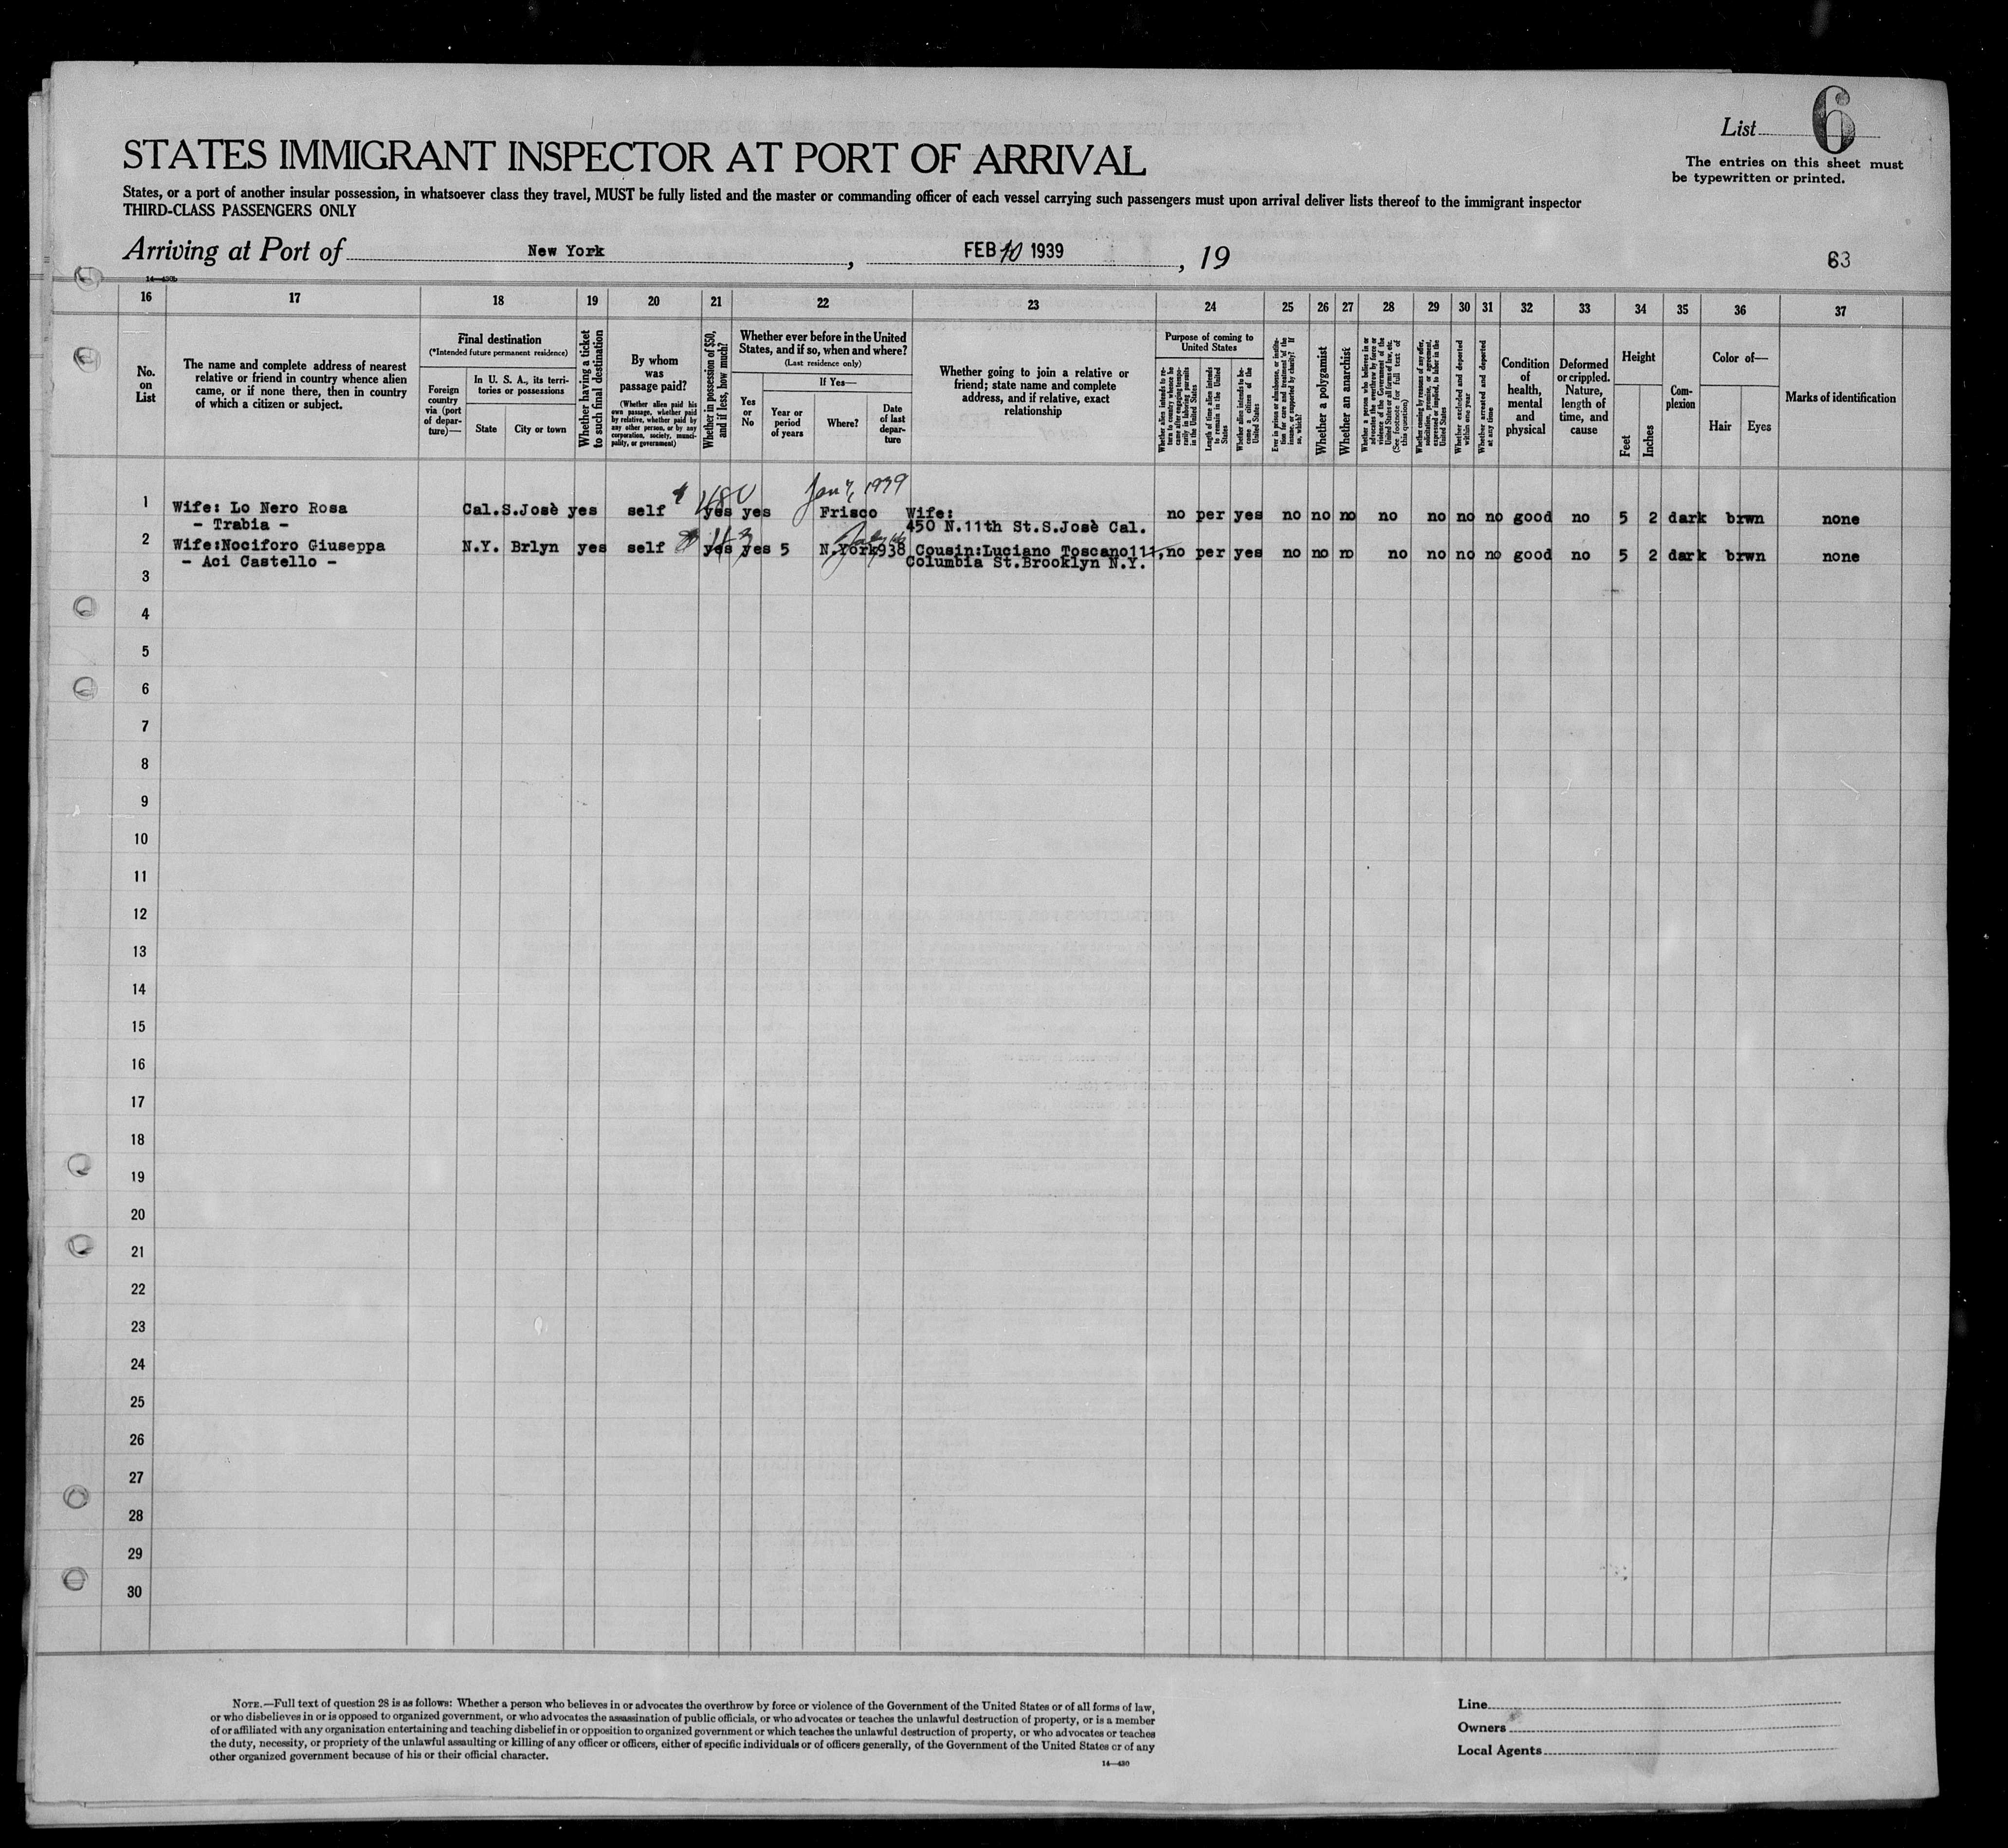 List 6
The entries on this sheet must
be typewritten or printed.
STATES IMMIGRANT INSPECTOR AT PORT OF ARRIVAL
States, or a port of another insular possession, in whatsoever class they travel, MUST be fully listed and the master or commanding officer of each vessel carrying such passengers must upon arrival deliver lists thereof to the immigrant inspector
THIRD-CLASS PASSENGERS ONLY
Arriving at Port of New York, FEB 10 1939, 19
63
16 17 18 19 20 21 22 23 24 25 26 27 28 29 30 31 32 33 34 35 36 37
No.
on
List
The name and complete address of nearest
relative or friend in country whence alien
came, or if none there, then in country
of which a citizen or subject.
Final destination
(*Intended future permanent residence)
Foreign
country
via (port
of depar-
ture)—
In U. S. A., its terri-
tories or possessions
State
City or town
Whether having a ticket
to such final destination
By whom
was
passage paid?
(Whether alien paid his
own passage, whether paid
by relative, whether paid by
any other person, or by any
corporation, society, munici-
pality, or government)
Whether in possession of $50,
and if less, how much?
Whether ever before in the United
States, and if so, when and where?
(Last residence only)
Yes
or
No
If Yes—
Year or
period
of years
Where?
Date
of last
depar-
ture
Whether going to join a relative or
friend; state name and complete
address, and if relative, exact
relationship
Purpose of coming to
United States
Whether alien intends to re-
turn to country whence he
came after engaging tempo-
rarily in laboring pursuits
in the United States
Length of time alien intends
to remain in the United
States
Whether alien intends to be-
come a citizen of the
United States
Ever in prison or almshouse, or institu-
tion for care and treatment of the
insane, or supported by charity? If
so, which?
Whether a polygamist
Whether an anarchist
Whether a person who believes in or
advocates the overthrow by force or
violence of the Government of the
United States or all forms of law, etc.
(See footnote for full text of
this question)
Whether coming by reasons of any offer,
solicitation, promise, or agreement,
expressed or implied, to labor in the
United States
Whether excluded and deported
within one year
Whether arrested and deported
at any time
Condition
of
health,
mental
and
physical
Deformed
or crippled.
Nature,
length of
time, and
cause
Height
Feet
Inches
Com-
plexion
Color of—
Hair
Eyes
Marks of identification
Jan 7, 1939
1 Wife: Lo Nero Rosa Cal. S.Josè yes self 480 yes yes Frisco Wife: no per yes no no no no no no no good no 5 2 dark brwn none
- Trabia - 450 N.11th St.S.Josè Cal.
2 Wife:Nociforo Giuseppa N.Y. Brlyn yes self yes yes 5 N.York 938 Cousin:Luciano Toscano111, no per yes no no no no no no no good no 5 2 dark brwn none
- Aci Castello - Columbia St.Brooklyn N.Y.
3
4
5
6
7
8
9
10
11
12
13
14
15
16
17
18
19
20
21
22
23
24
25
26
27
28
29
30
NOTE.—Full text of question 28 is as follows: Whether a person who believes in or advocates the overthrow by force or violence of the Government of the United States or of all forms of law,
or who disbelieves in or is opposed to organized government, or who advocates the assassination of public officials, or who advocates or teaches the unlawful destruction of property, or is a member
of or affiliated with any organization entertaining and teaching disbelief in or opposition to organized government or which teaches the unlawful destruction of property, or who advocates or teaches
the duty, necessity, or propriety of the unlawful assaulting or killing of any officer or officers, either of specific individuals or of officers generally, of the Government of the United States or of any
other organized government because of his or their official character.
14—430
Line
Owners
Local Agents